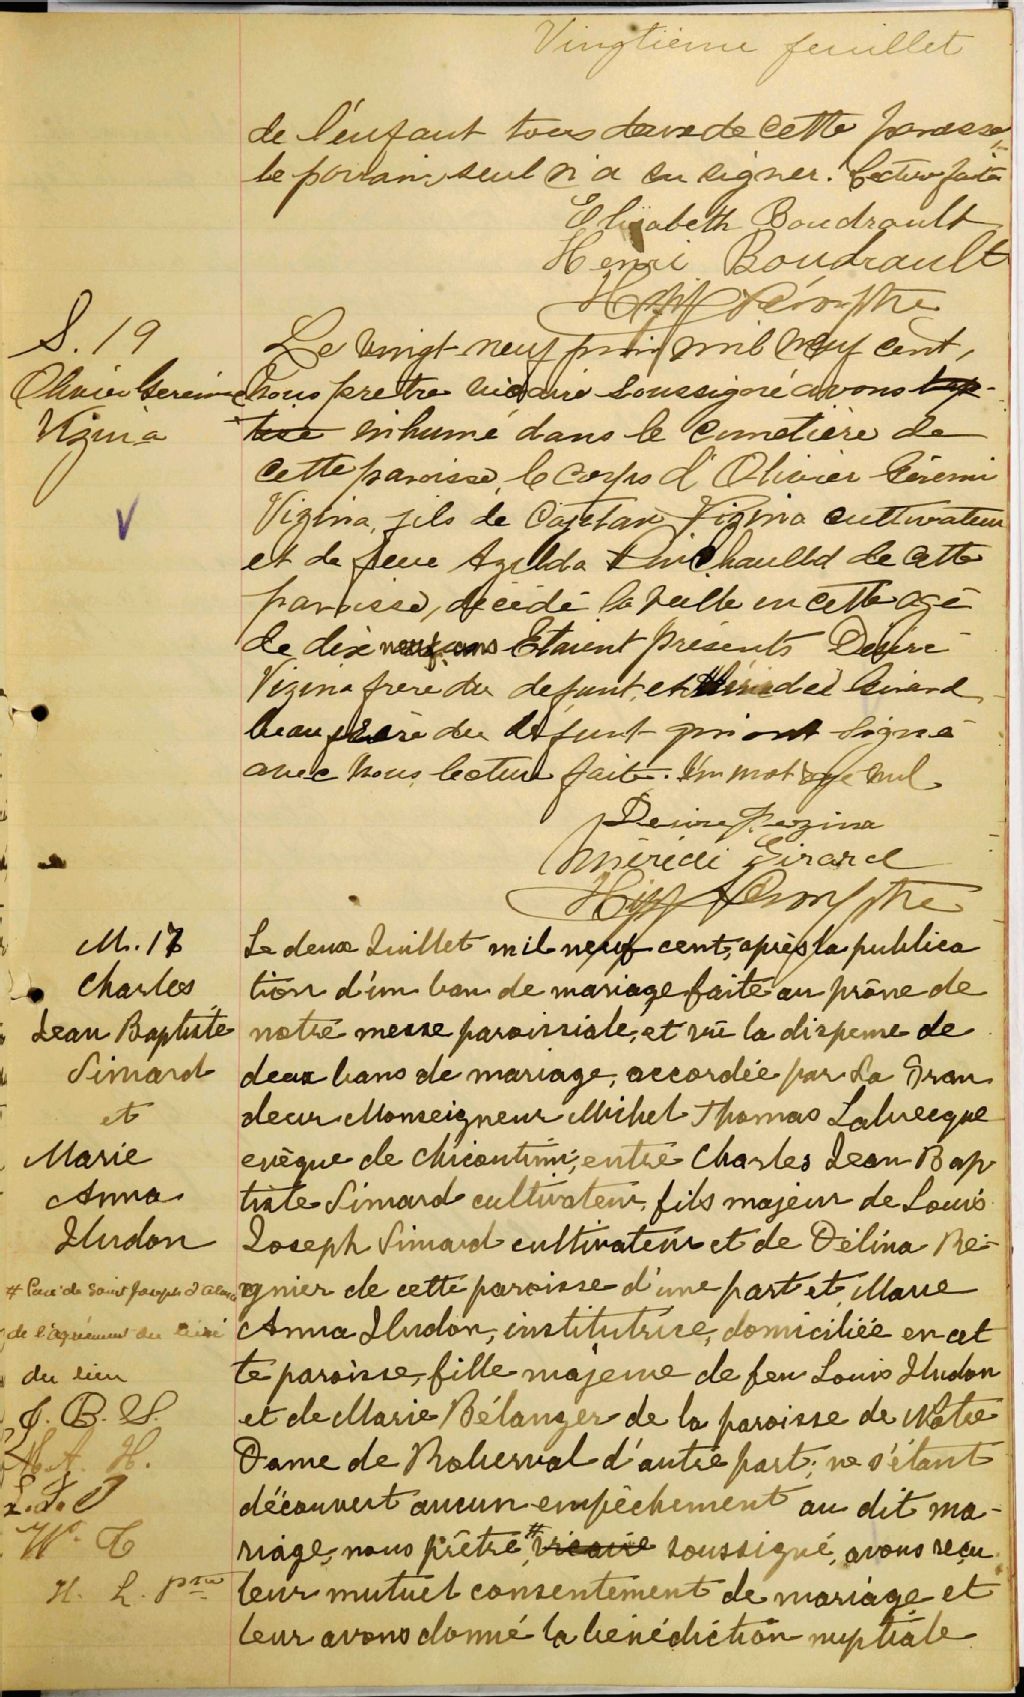 Vingtième feuillet
de l'enfant tous deux de cette paroisse
le parrain seul n'a su signer. Lecture faite
Elizabeth Boudrault
Henri Boudrault
S. 19
Olivier Geremie
Vézina
Le vingt neuf juin mil neuf cent,
nous prêtre vicaire soussigné avons bap-
tisé inhumé dans le cimetière de
cette paroisse, le corps d'Olivier Gérémi
Vizina, fils de Cajetan Vizina cultivateur
et de feue Azilda de cette
paroisse, décédé la veille en cette agé
de dix neuf ans Etaient présents Désiré
Vizina frère du defunt, et Girard
beau frère du défunt qui ont signé
avec nous lecture faite. Un mot rayé nul
Desire Vezina
Méridé Girard
M. 17
Charles
Jean Baptiste
Simard
et
Marie
Anna
Hudon
Le deux Juillet mil neuf cent, après la publica
tion d'un ban de mariage faite au prône de
notre messe paroissiale, et vu la dispense de
deux bans de mariage, accordée par Sa Gran
deur Monseigneur Michel Thomas Labrecque
evèque de Chicoutimi, entre Charles Jean Bap
tiste Simard cultivateur, fils majeur de Louis
Joseph Simard cultivateur et de Délina Ré-
gnier de cette paroisse d'une part et Marie
Anna Hudon, institutrice, domiciliée en cet
te paroisse, fille majeure de feu Louis Hudon
et de Marie Bélanger de la paroisse de Notre
Dame de Roberval d'autre part; ne s'étant
découvert aucun empêchement au dit ma-
riage, nous prêtre # vicaire soussigné, avons reçu
leur mutuel consentement de mariage et
leur avons donné la bénédiction nuptiale
# Curé de Saint Joseph d'Alma
de l'agrément du curé
du lieu
J. B. S.
M. A. H.
L. J. S
W. T
H. L. ptre